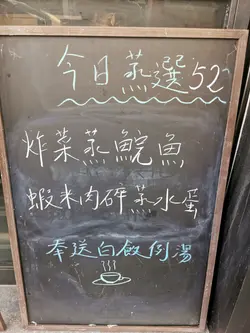 今日蒸選52
炸菜蒸鯇魚
蝦米肉碎蒸水蛋
奉送白飯例湯